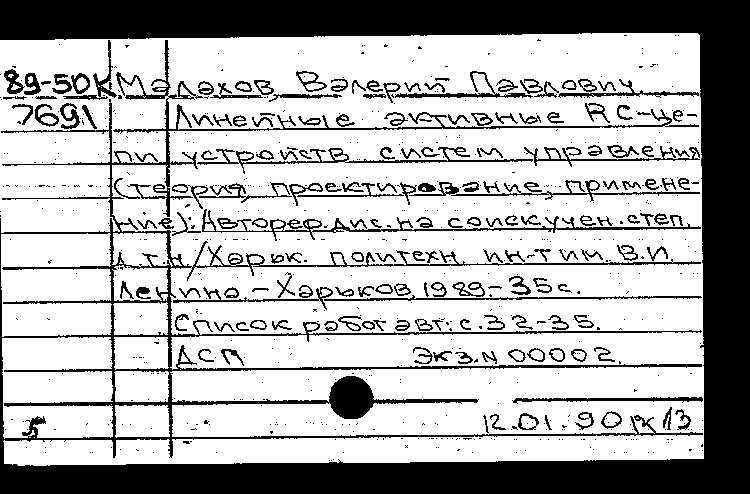 89-50К Малахов, Валерий Павлович
7691 Линейные активные RC-це-
пи устройств систем управления
(теория, проектирование, примене-
ние): Автореф. дис. на соиск. учен. степ.
д.т.н/Харьк. политехн. ин-т им В.И.
Ленина. - Харьков, 1989 - 35с.
Список работ авт: с. 32-35.
ДСП Экз. N 00002.
12.01.90
5